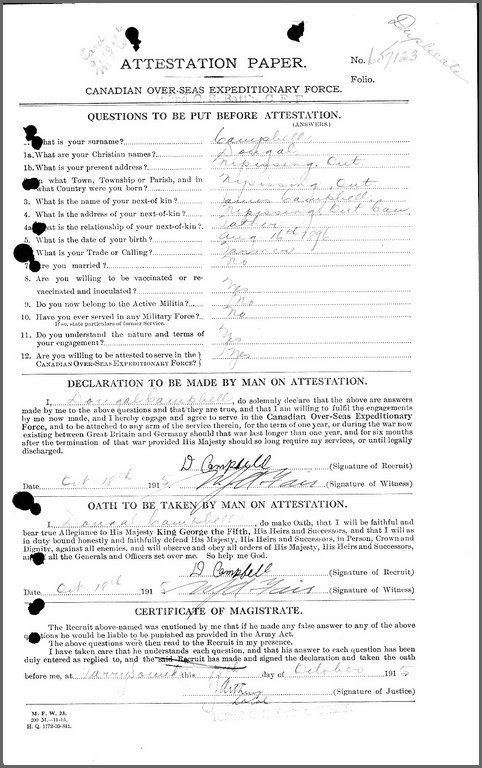 Duplicate
ATTESTATION PAPER.
No. 657123
Folio.
CANADIAN OVER-SEAS EXPEDITIONARY FORCE.
QUESTIONS TO BE PUT BEFORE ATTESTATION.
(ANSWERS)
What is your surname? Campbell
1a. What are your Christian names? Dougal
1b. What is your present address? Nipissing, Ont
In what Town, Township or Parish, and in
what Country were you born? Nipissing, Ont.
3. What is the name of your next-of-kin? James Campbell
4. What is the address of your next-of-kin? Nipissing, Ont Can
4a. What is the relationship of your next-of-kin? Father
5. What is the date of your birth? Aug 16th 1896
What is your Trade or Calling? Farmer
7. Are you married? No
8. Are you willing to be vaccinated or re-
vaccinated and inoculated? Yes
9. Do you now belong to the Active Militia? No
10. Have you ever served in any Military Force? No
If so, state particulars of former Service.
11. Do you understand the nature and terms of
your engagement? Yes
12. Are you willing to be attested to serve in the
CANADIAN OVER-SEAS EXPEDITIONARY FORCE? Yes
DECLARATION TO BE MADE BY MAN ON ATTESTATION.
I, Dougal Campbell, do solemnly declare that the above are answers
made by me to the above questions and that they are true, and that I am willing to fulfil the engagements
by me now made, and I hereby engage and agree to serve in the Canadian Over-Seas Expeditionary
Force, and to be attached to any arm of the service therein, for the term of one year, or during the war now
existing between Great Britain and Germany should that war last longer than one year, and for six months
after the termination of that war provided His Majesty should so long require my services, or until legally
discharged.
D Campbell (Signature of Recruit)
Date Oct 18th 1915 (Signature of Witness)
OATH TO BE TAKEN BY MAN ON ATTESTATION.
I, Dougal Campbell, do make Oath, that I will be faithful and
bear true Allegiance to His Majesty King George the Fifth, His Heirs and Successors, and that I will as
in duty bound honestly and faithfully defend His Majesty, His Heirs and Successors, in Person, Crown and
Dignity, against all enemies, and will observe and obey all orders of His Majesty, His Heirs and Successors,
and of all the Generals and Officers set over me. So help me God.
D Campbell (Signature of Recruit)
Date Oct 18th 1915 (Signature of Witness)
CERTIFICATE OF MAGISTRATE.
The Recruit above-named was cautioned by me that if he made any false answer to any of the above
questions he would be liable to be punished as provided in the Army Act.
The above questions were then read to the Recruit in my presence.
I have taken care that he understands each question, and that his answer to each question has been
duly entered as replied to, and the said Recruit has made and signed the declaration and taken the oath
before me, at Parry Sound this day of October 1915
(Signature of Justice)
M. F. W. 23.
200 M.—11-15.
H. Q. 1772-39-841.